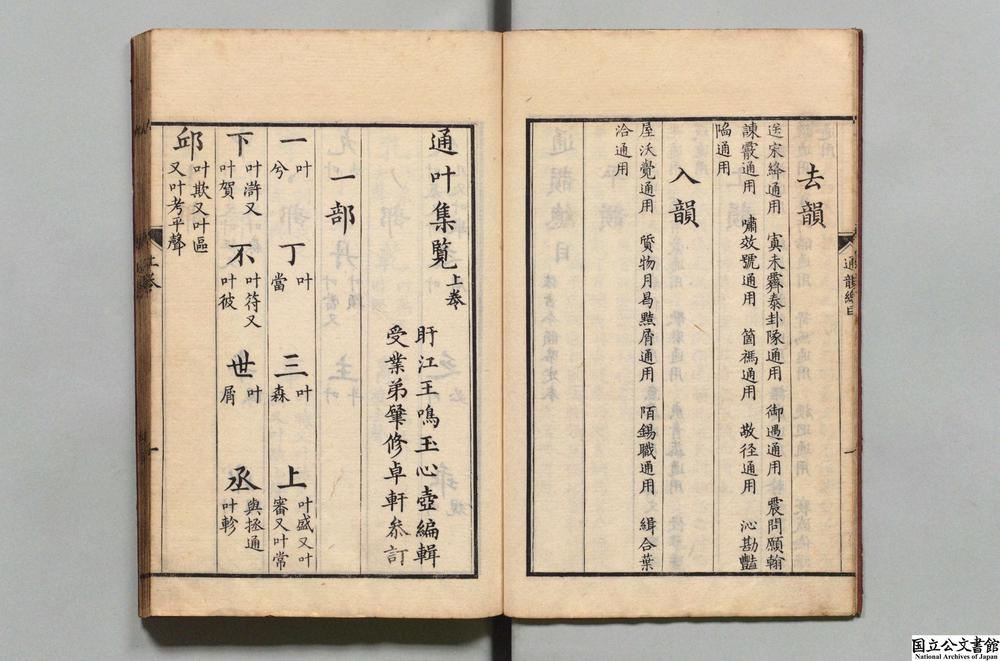 去韻
送宋絳通用　寘未霽泰卦隊通用　御遇通用　震問願翰
諫霰通用　嘯效號通用　箇禡通用　敬径通用　沁勘豔
陷通用
入韻
屋沃覺通用　質物月曷黠屑通用　陌錫職通用　緝合葉
洽通用
通韻總目
一
通叶集覽上卷
盱江王鳴玉心壺編輯
受業弟肇修卓軒叅訂
一部
一叶兮　丁叶當　三叶森　上叶盛又叶審又叶常
下叶滸又叶賀　不叶符又叶彼　世叶屑　丞與拯通叶軫
邱叶欺又叶區又叶考平聲
上卷
一
国立公文書館
National Archives of Japan